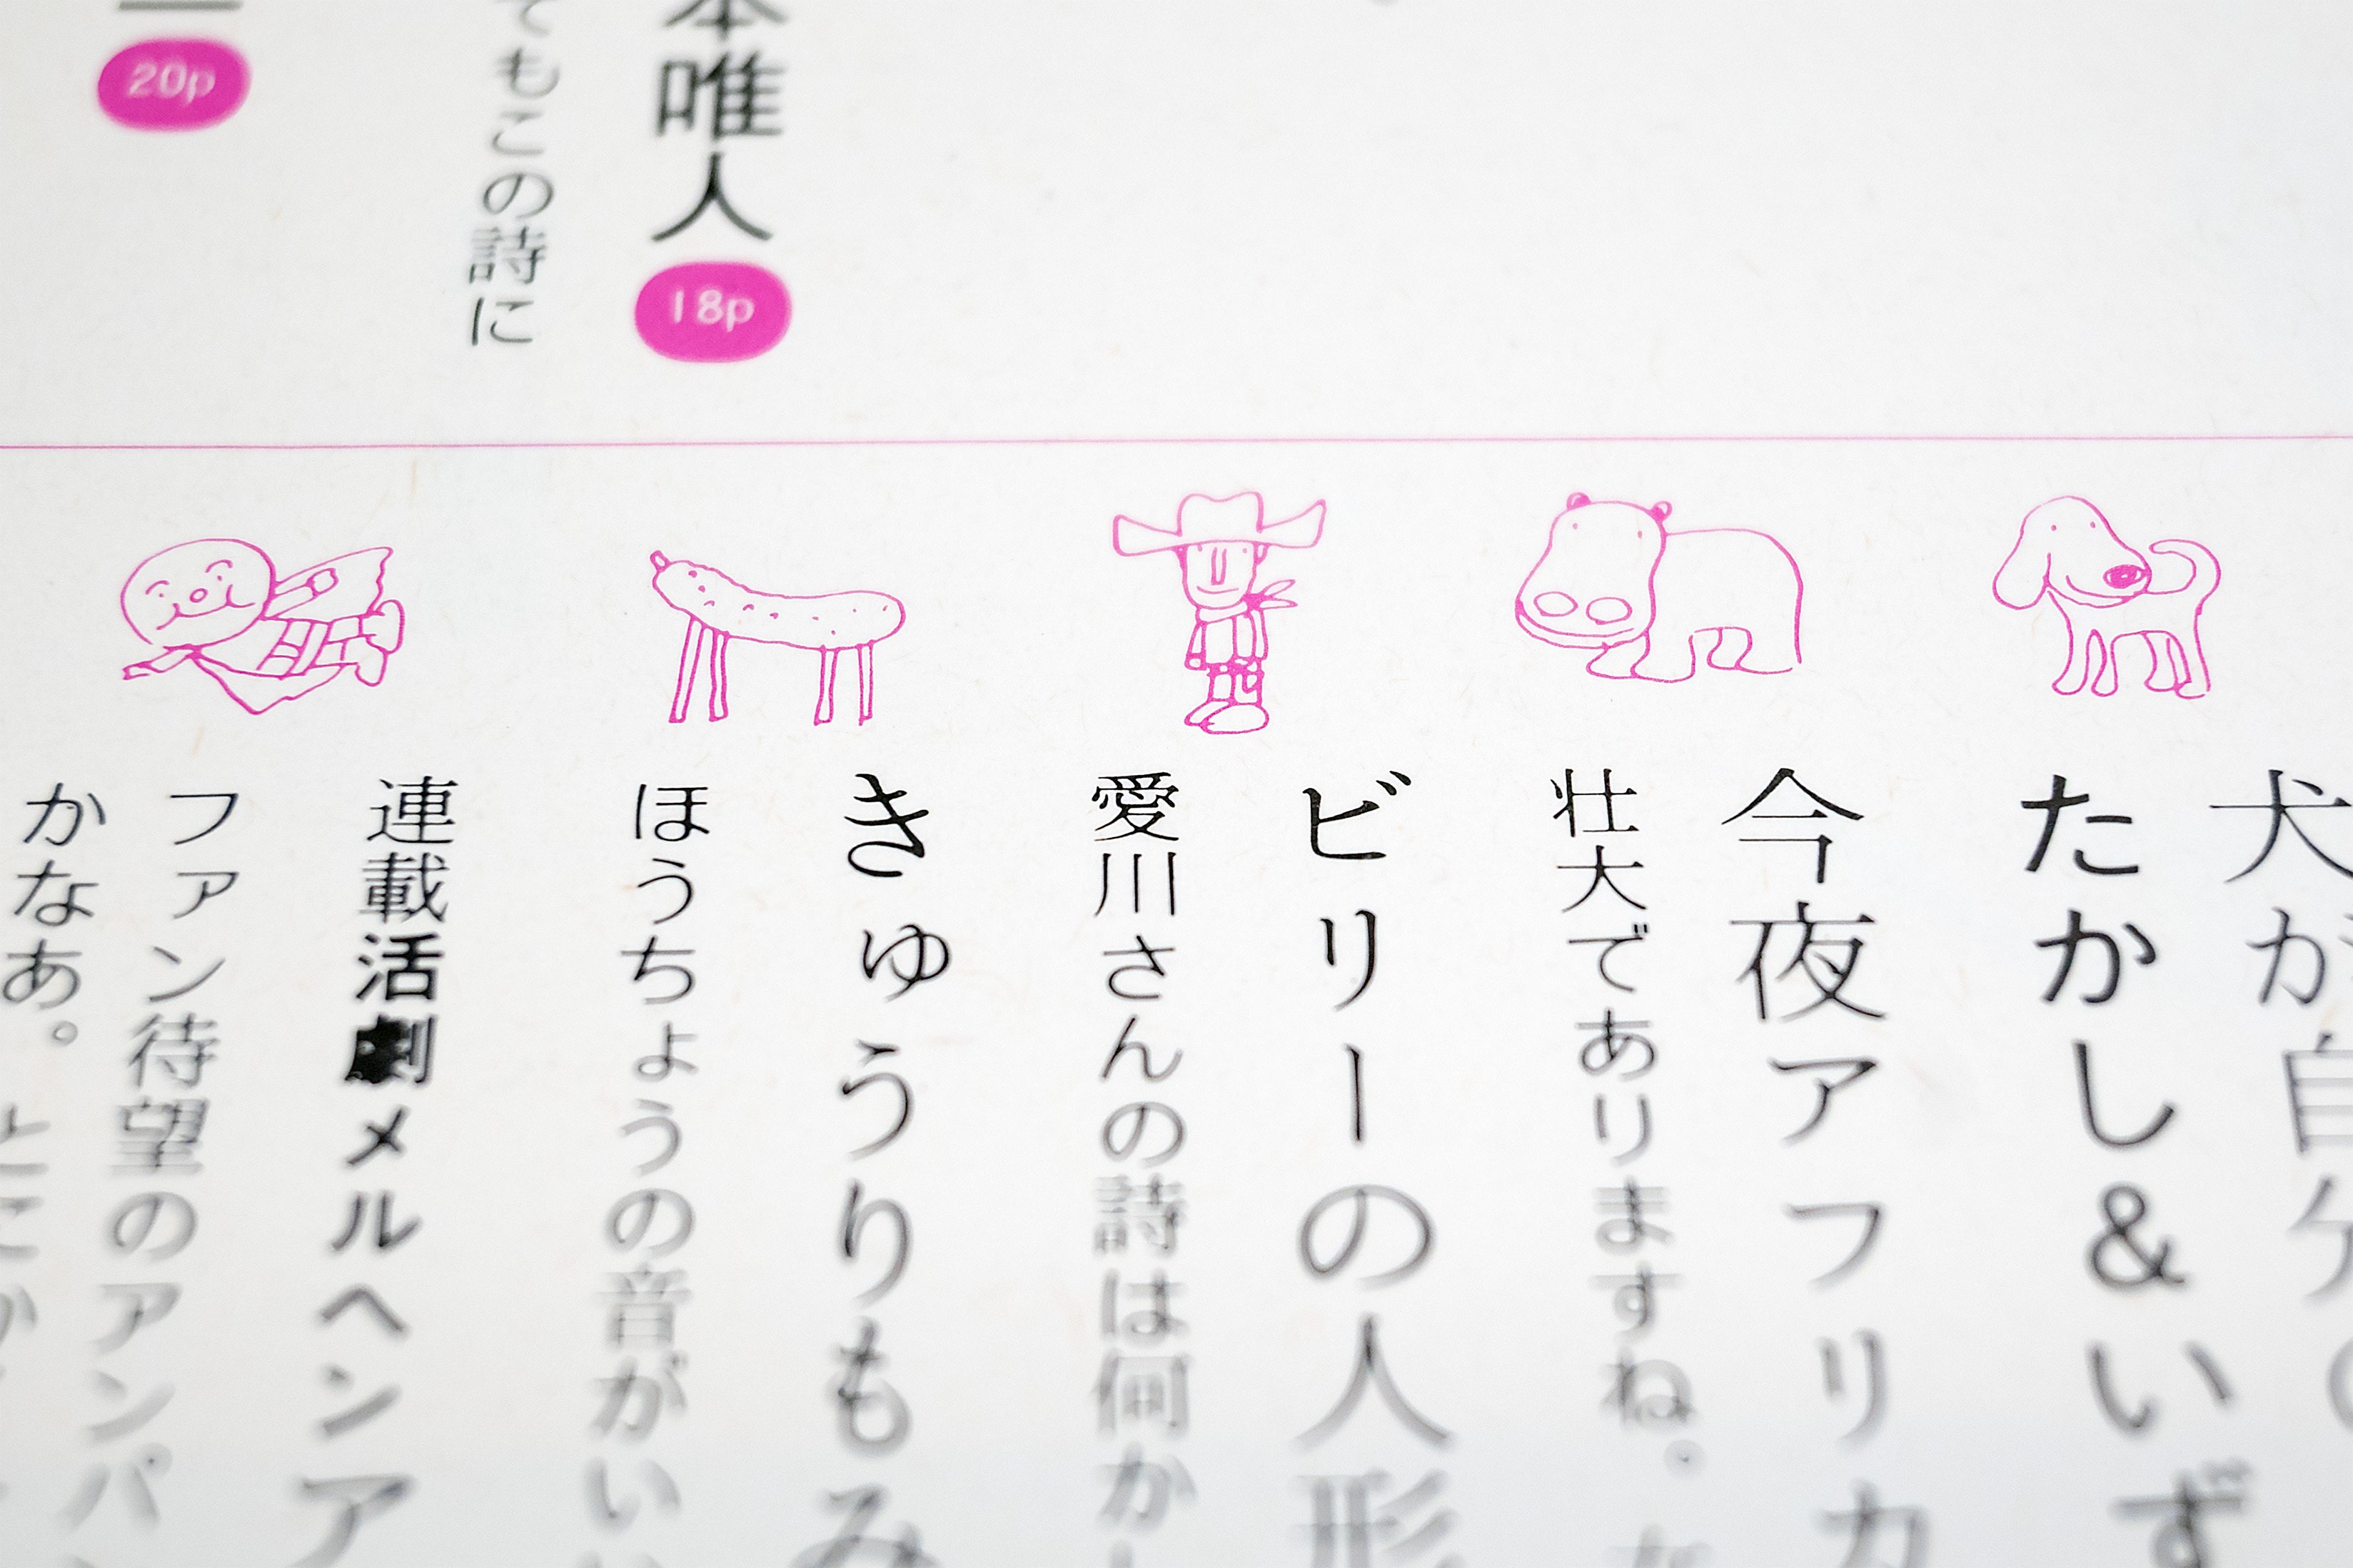 本唯人
18p
てもこの詩に
20p
犬が自ケの
たかし&いず
今夜アフリカ
壮大でありますね。
ビリーの人形
愛川さんの詩は何か
きゅうりもみ
ほうちょうの音がい
連載活劇メルヘンア
ファン待望のアンパ
かなあ。とにか